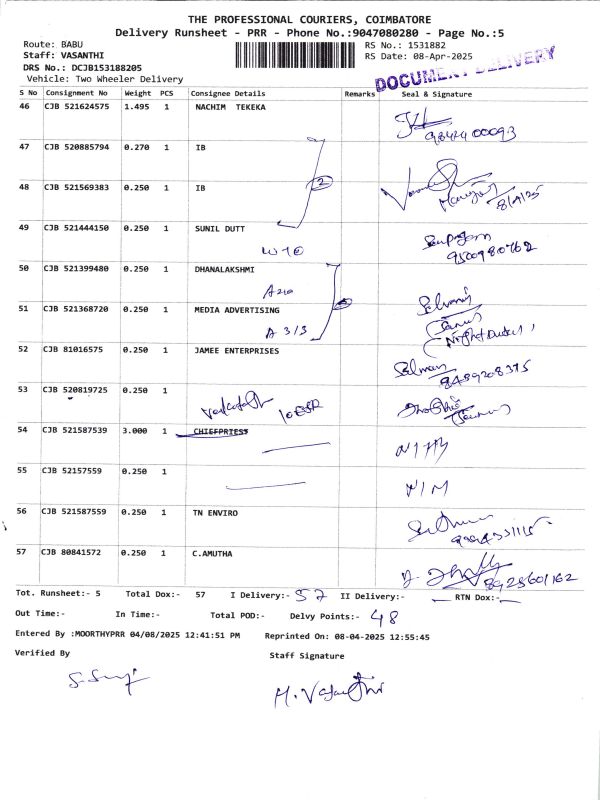 THE PROFESSIONAL COURIERS, COIMBATORE
Delivery Runsheet - PRR - Phone No.:9047080280 - Page No.:5
Route: BABU RS No.: 1531882
Staff: VASANTHI RS Date: 08-Apr-2025
DRS No.: DCJB153188205
DOCUMENT DELIVERY
Vehicle: Two Wheeler Delivery
S No Consignment No Weight PCS Consignee Details Remarks Seal & Signature
46 CJB 521624575 1.495 1 NACHIM TEKEKA
47 CJB 520885794 0.270 1 IB
2
48 CJB 521569383 0.250 1 IB
8/4/25
49 CJB 521444150 0.250 1 SUNIL DUTT
W10 9500980762
50 CJB 521399480 0.250 1 DHANALAKSHMI
A210
51 CJB 521368720 0.250 1 MEDIA ADVERTISING
A 313
52 CJB 81016575 0.250 1 JAMEE ENTERPRISES
Salman 8489208375
53 CJB 520819725 0.250 1
54 CJB 521587539 3.000 1 CHIEFPRIESS
55 CJB 52157559 0.250 1
N/M
56 CJB 521587559 0.250 1 TN ENVIRO
57 CJB 80841572 0.250 1 C.AMUTHA
8925601162
Tot. Runsheet:- 5 Total Dox:- 57 I Delivery:- 57 II Delivery:- RTN Dox:-
Out Time:- In Time:- Total POD:- Delvy Points:- 48
Entered By :MOORTHYPRR 04/08/2025 12:41:51 PM Reprinted On: 08-04-2025 12:55:45
Verified By Staff Signature
M. Vasanthi